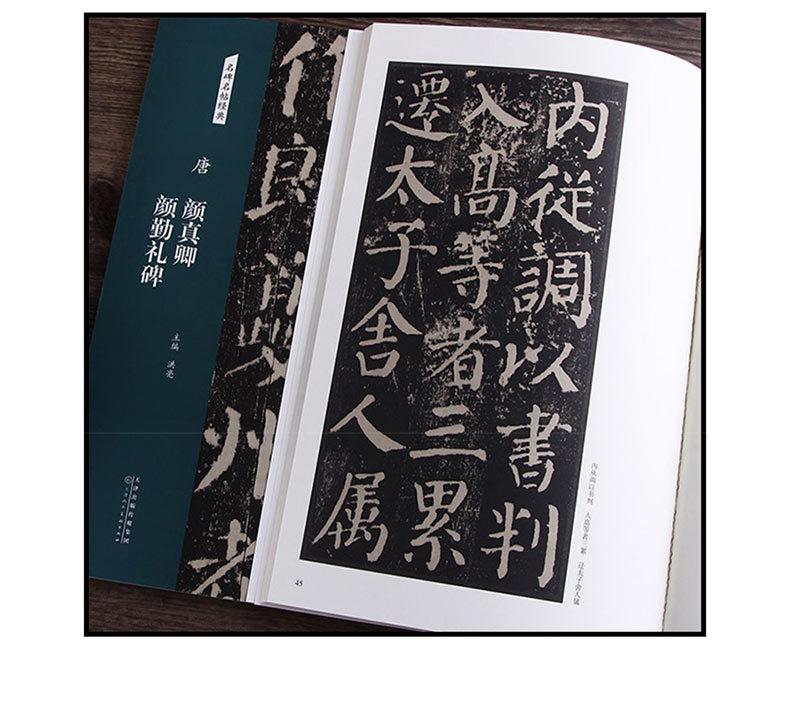 名碑名帖经典
唐
颜真卿
颜勤礼碑
主编 洪亮
天津出版传媒集团
内從調以書判
入髙等者三累
遷太子舍人属
内从调以书判 入高等者三累 迁太子舍人属
45